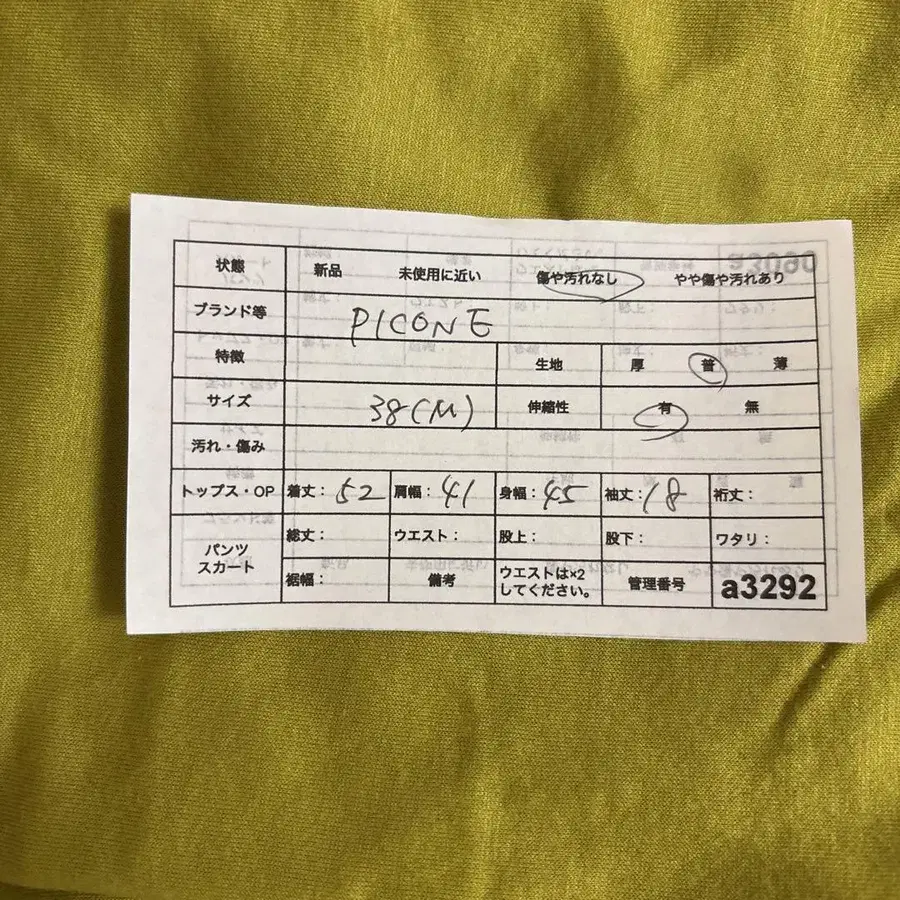 状態 新品 未使用に近い 傷や汚れなし やや傷や汚れあり
ブランド等 PICONE
特徴 生地 厚 普 薄
サイズ 38(M) 伸縮性 有 無
汚れ・傷み
トップス・OP 着丈: 52 肩幅: 41 身幅: 45 袖丈: 18 裄丈:
パンツ スカート 総丈: ウエスト: 股上: 股下: ワタリ:
裾幅: 備考 ウエストは×2
してください。 管理番号 a3292